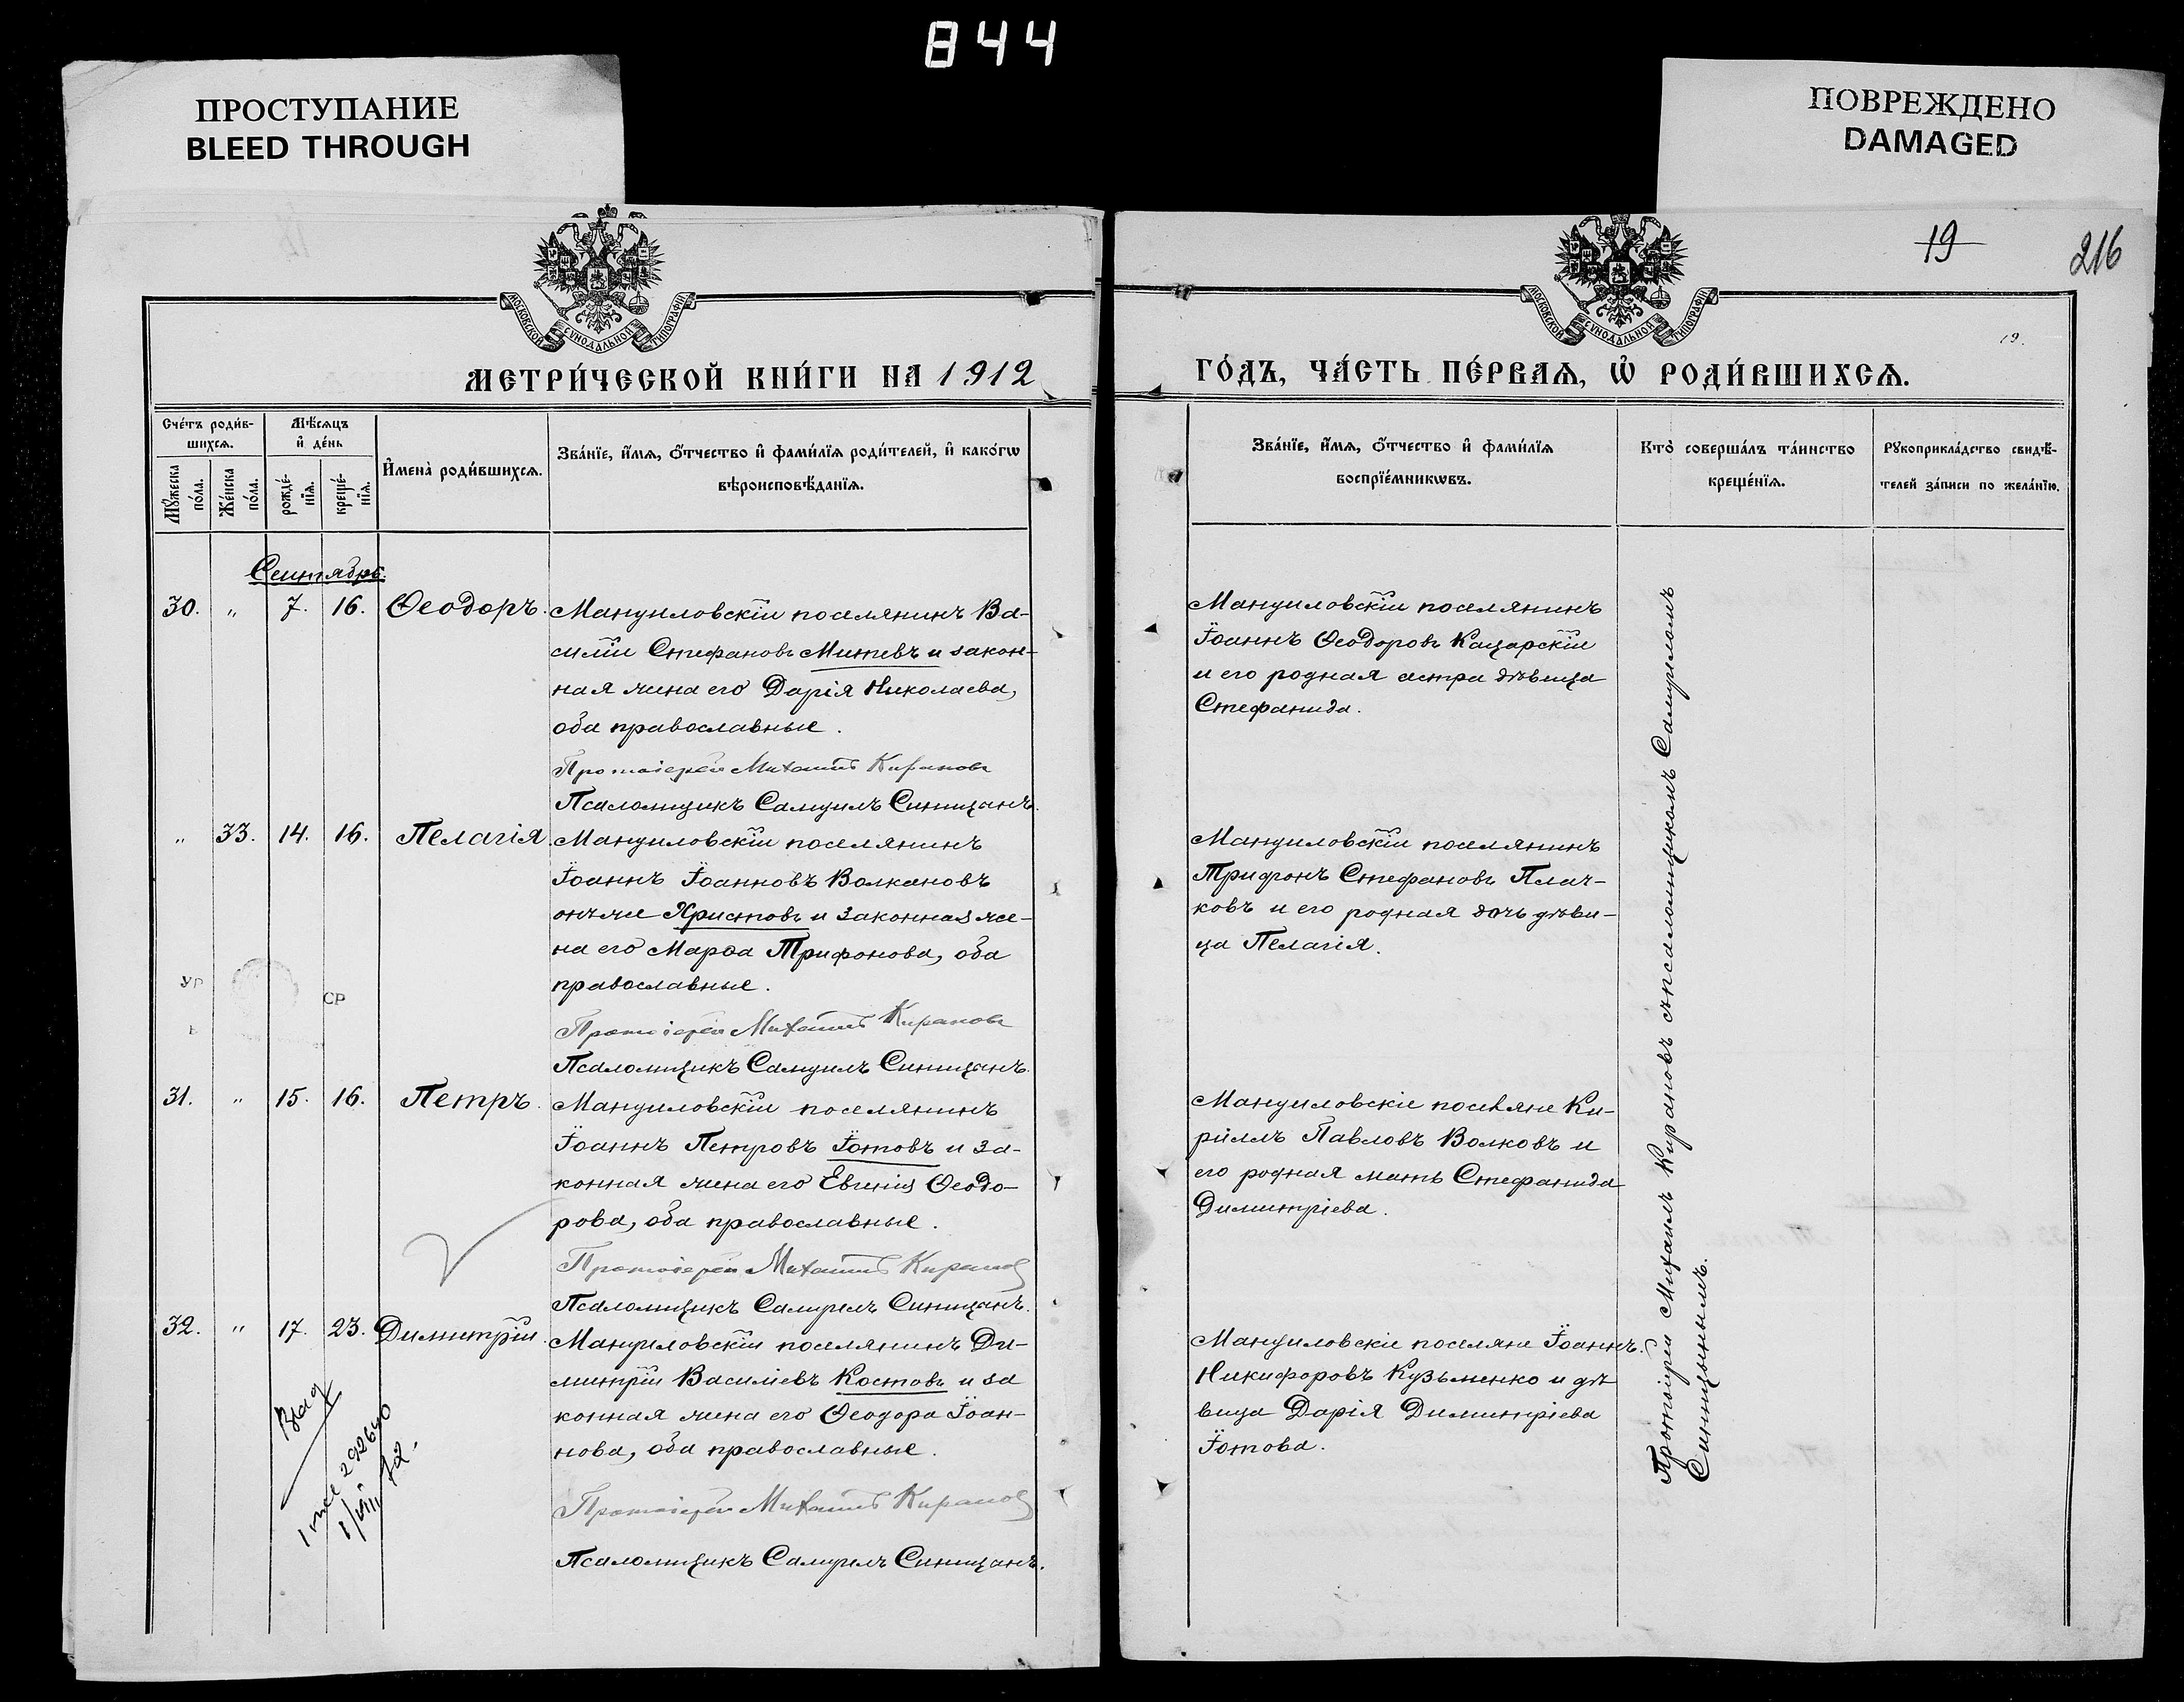 844
ПРОСТУПАНИЕ
BLEED THROUGH
ПОВРЕЖДЕНО
DAMAGED
19
216
МОСКОВСКОЙ СѴНОДАЛЬНОЙ ТИПОГРАФІИ
МОСКОВСКОЙ СѴНОДАЛЬНОЙ ТИПОГРАФІИ
19.
МЕТРИ́ЧЕСКОЙ КНИ́ГИ НА 1912
ГО́ДЪ, ЧА́СТЬ ПЕ́РВАѦ, Ѡ҆ РОДИ́ВШИХСѦ.
Сче́тъ роди́в-
шихсѧ.
Мѣ́сѧцъ
и҆ де́нь
Мꙋ́жеска
по́ла.
Же́нска
по́ла.
рожде́-
нїѧ.
креще́-
нїѧ.
И҆мена̀ роди́вшихсѧ.
Зва́нїе, и҆́мѧ, ѻ҆́тчество и҆ фами́лїѧ роди́телей, и҆ како́гѡ
вѣроисповѣ́данїѧ.
Зва́нїе, и҆́мѧ, ѻ҆́тчество и҆ фами́лїѧ
воспрїе́мникѡвъ.
Кто̀ соверша́лъ та́инство
креще́нїѧ.
Рꙋкоприкла́дство свидѣ́-
телей за́писи по жела́нїю.
Сентябрь.
30. " 7. 16. Ѳеодоръ.
Мануиловскій поселянинъ Ва-
силій Стефановъ Митевъ и закон-
ная жена его Дарія Николаева,
оба православные.
Протоіерей Михаилъ Кирановъ
Псаломщикъ Самуилъ Синицанъ.
Мануиловскій поселянинъ
Іоаннъ Ѳеодоровъ Кацарскій
и его родная сестра дѣвица
Стефанида.
" 33. 14. 16. Пелагія.
Мануиловскій поселянинъ
Іоаннъ Іоанновъ Волкановъ
онъ же Христовъ и законная же-
на его Марѳа Трифонова, оба
православные.
Протоіерей Михаилъ Кирановъ
Псаломщикъ Самуилъ Синицанъ.
Мануиловскій поселянинъ
Трифонъ Стефановъ Плач-
ковъ и его родная дочь дѣви-
ца Пелагія.
УР
СР
31. " 15. 16. Петръ.
Мануиловскій поселянинъ
Іоаннъ Петровъ Іотовъ и за-
конная жена его Евгенія Ѳеодо-
рова, оба православные.
Протоіерей Михаилъ Кирановъ
Псаломщикъ Самуилъ Синицанъ.
Мануиловскіе поселяне Ки-
риллъ Павловъ Волковъ и
его родная мать Стефанида
Димитріева.
32. " 17. 23. Димитрій.
Мануиловскій поселянинъ Ди-
митрій Василіевъ Костовъ и за
конная жена его Ѳеодора Іоан-
нова, оба православные.
Протоіерей Михаилъ Кирановъ
Псаломщикъ Самуилъ Синицанъ.
Мануиловскіе поселяне Іоаннъ
Никифоровъ Кузьменко и дѣ
вица Дарія Димитріева
Іотова.
292640
Протоіерей Михаилъ Кирановъ съ псаломщикомъ Самуиломъ
Синицынымъ.